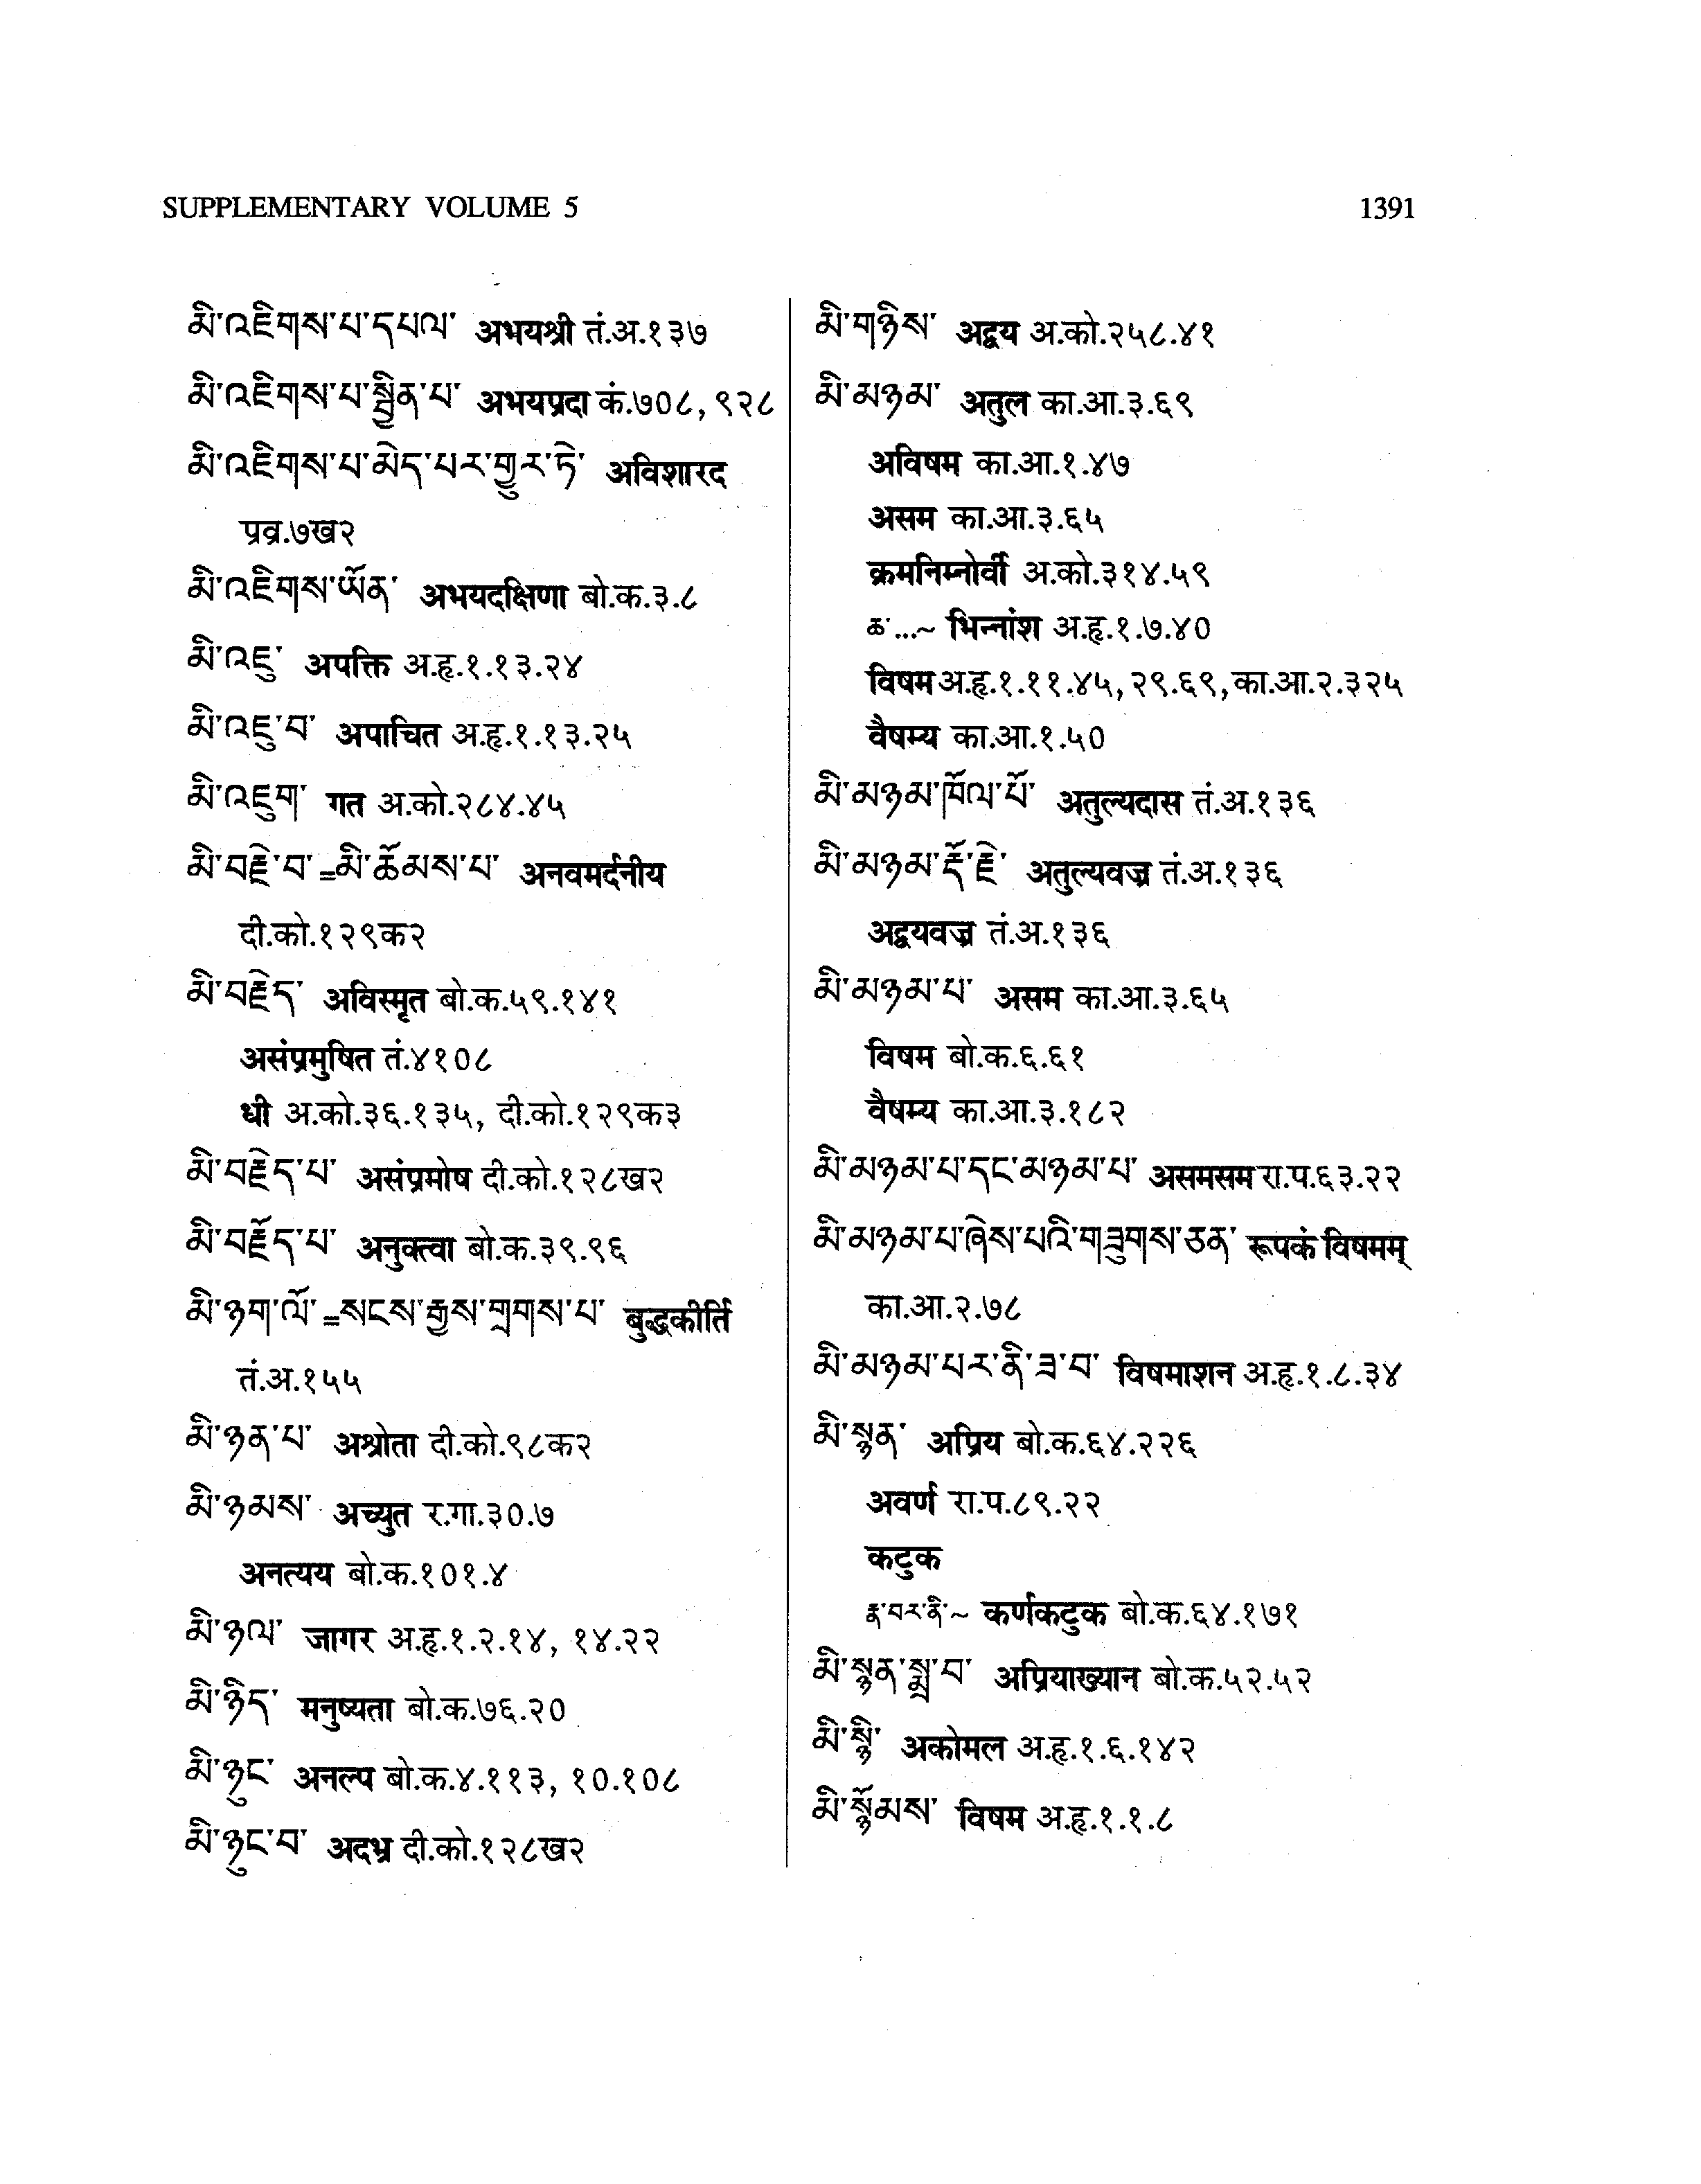 SUPPLEMENTARY VOLUME 5
1391
མི་འཇིགས་པ་དཔལ་ अभयश्री तं.अ.१३७
མི་འཇིགས་པ་སྦྱིན་པ་ अभयप्रदा कं.७०८, ९२८
མི་འཇིགས་པ་མེད་པར་གྱུར་ཏེ་ अविशारद
प्रव्र.७ख२
མི་འཇིགས་ཡོན་ अभयदक्षिणा बो.क.३.८
མི་འཇུ་ अपक्ति अ.हृ.१.१३.२४
མི་འཇུ་བ་ अपाचित अ.हृ.१.१३.२५
མི་འཇུག་ गत अ.को.२८४.४५
མི་བརྫེ་བ་=མི་ཆོམས་པ་ अनवमर्दनीय
दी.को.१२९क२
མི་བརྗེད་ अविस्मृत बो.क.५९.१४१
असंप्रमुषित तं.४१०८
धी अ.को.३६.१३५, दी.को.१२९क३
མི་བརྗེད་པ་ असंप्रमोष दी.को.१२८ख२
མི་བརྗོད་པ་ अनुक्त्वा बो.क.३९.९६
མི་ཉག་ལོ་=སངས་རྒྱས་གྲགས་པ་ बुद्धकीर्ति
तं.अ.१५५
མི་ཉན་པ་ अश्रोता दी.को.९८क२
མི་ཉམས་ अच्युत र.गा.३०.७
अनत्यय बो.क.१०१.४
མི་ཉལ་ जागर अ.हृ.१.२.१४, १४.२२
མི་ཉིད་ मनुष्यता बो.क.७६.२०
མི་ཉུང་ अनल्प बो.क.४.११३, १०.१०८
མི་ཉུང་བ་ अदभ्र दी.को.१२८ख२
མི་གཉིས་ अद्वय अ.को.२५८.४१
མི་མཉམ་ अतुल का.आ.३.६९
अविषम का.आ.१.४७
असम का.आ.३.६५
क्रमनिम्नोर्वी अ.को.३१४.५९
ཆ་...~ भिन्नांश अ.हृ.१.७.४०
विषम अ.हृ.१.११.४५, २९.६९, का.आ.२.३२५
वैषम्य का.आ.१.५०
མི་མཉམ་ཁོལ་པོ་ अतुल्यदास तं.अ.१३६
མི་མཉམ་རྡོ་རྗེ་ अतुल्यवज्र तं.अ.१३६
अद्वयवज्र तं.अ.१३६
མི་མཉམ་པ་ असम का.आ.३.६५
विषम बो.क.६.६१
वैषम्य का.आ.३.१८२
མི་མཉམ་པ་དང་མཉམ་པ་ असमसम रा.प.६३.२२
མི་མཉམ་པ་ཞེས་པའི་གཟུགས་ཅན་ रूपकं विषमम्
का.आ.२.७८
མི་མཉམ་པར་ནི་ཟ་བ་ विषमाशन अ.हृ.१.८.३४
མི་སྙན་ अप्रिय बो.क.६४.२२६
अवर्ण रा.प.८९.२२
कटुक
རྣ་བར་ནི་~ कर्णकटुक बो.क.६४.१७१
མི་སྙན་སྨྲ་བ་ अप्रियाख्यान बो.क.५२.५२
མི་སྙི་ अकोमल अ.हृ.१.६.१४२
མི་སྙོམས་ विषम अ.हृ.१.१.८